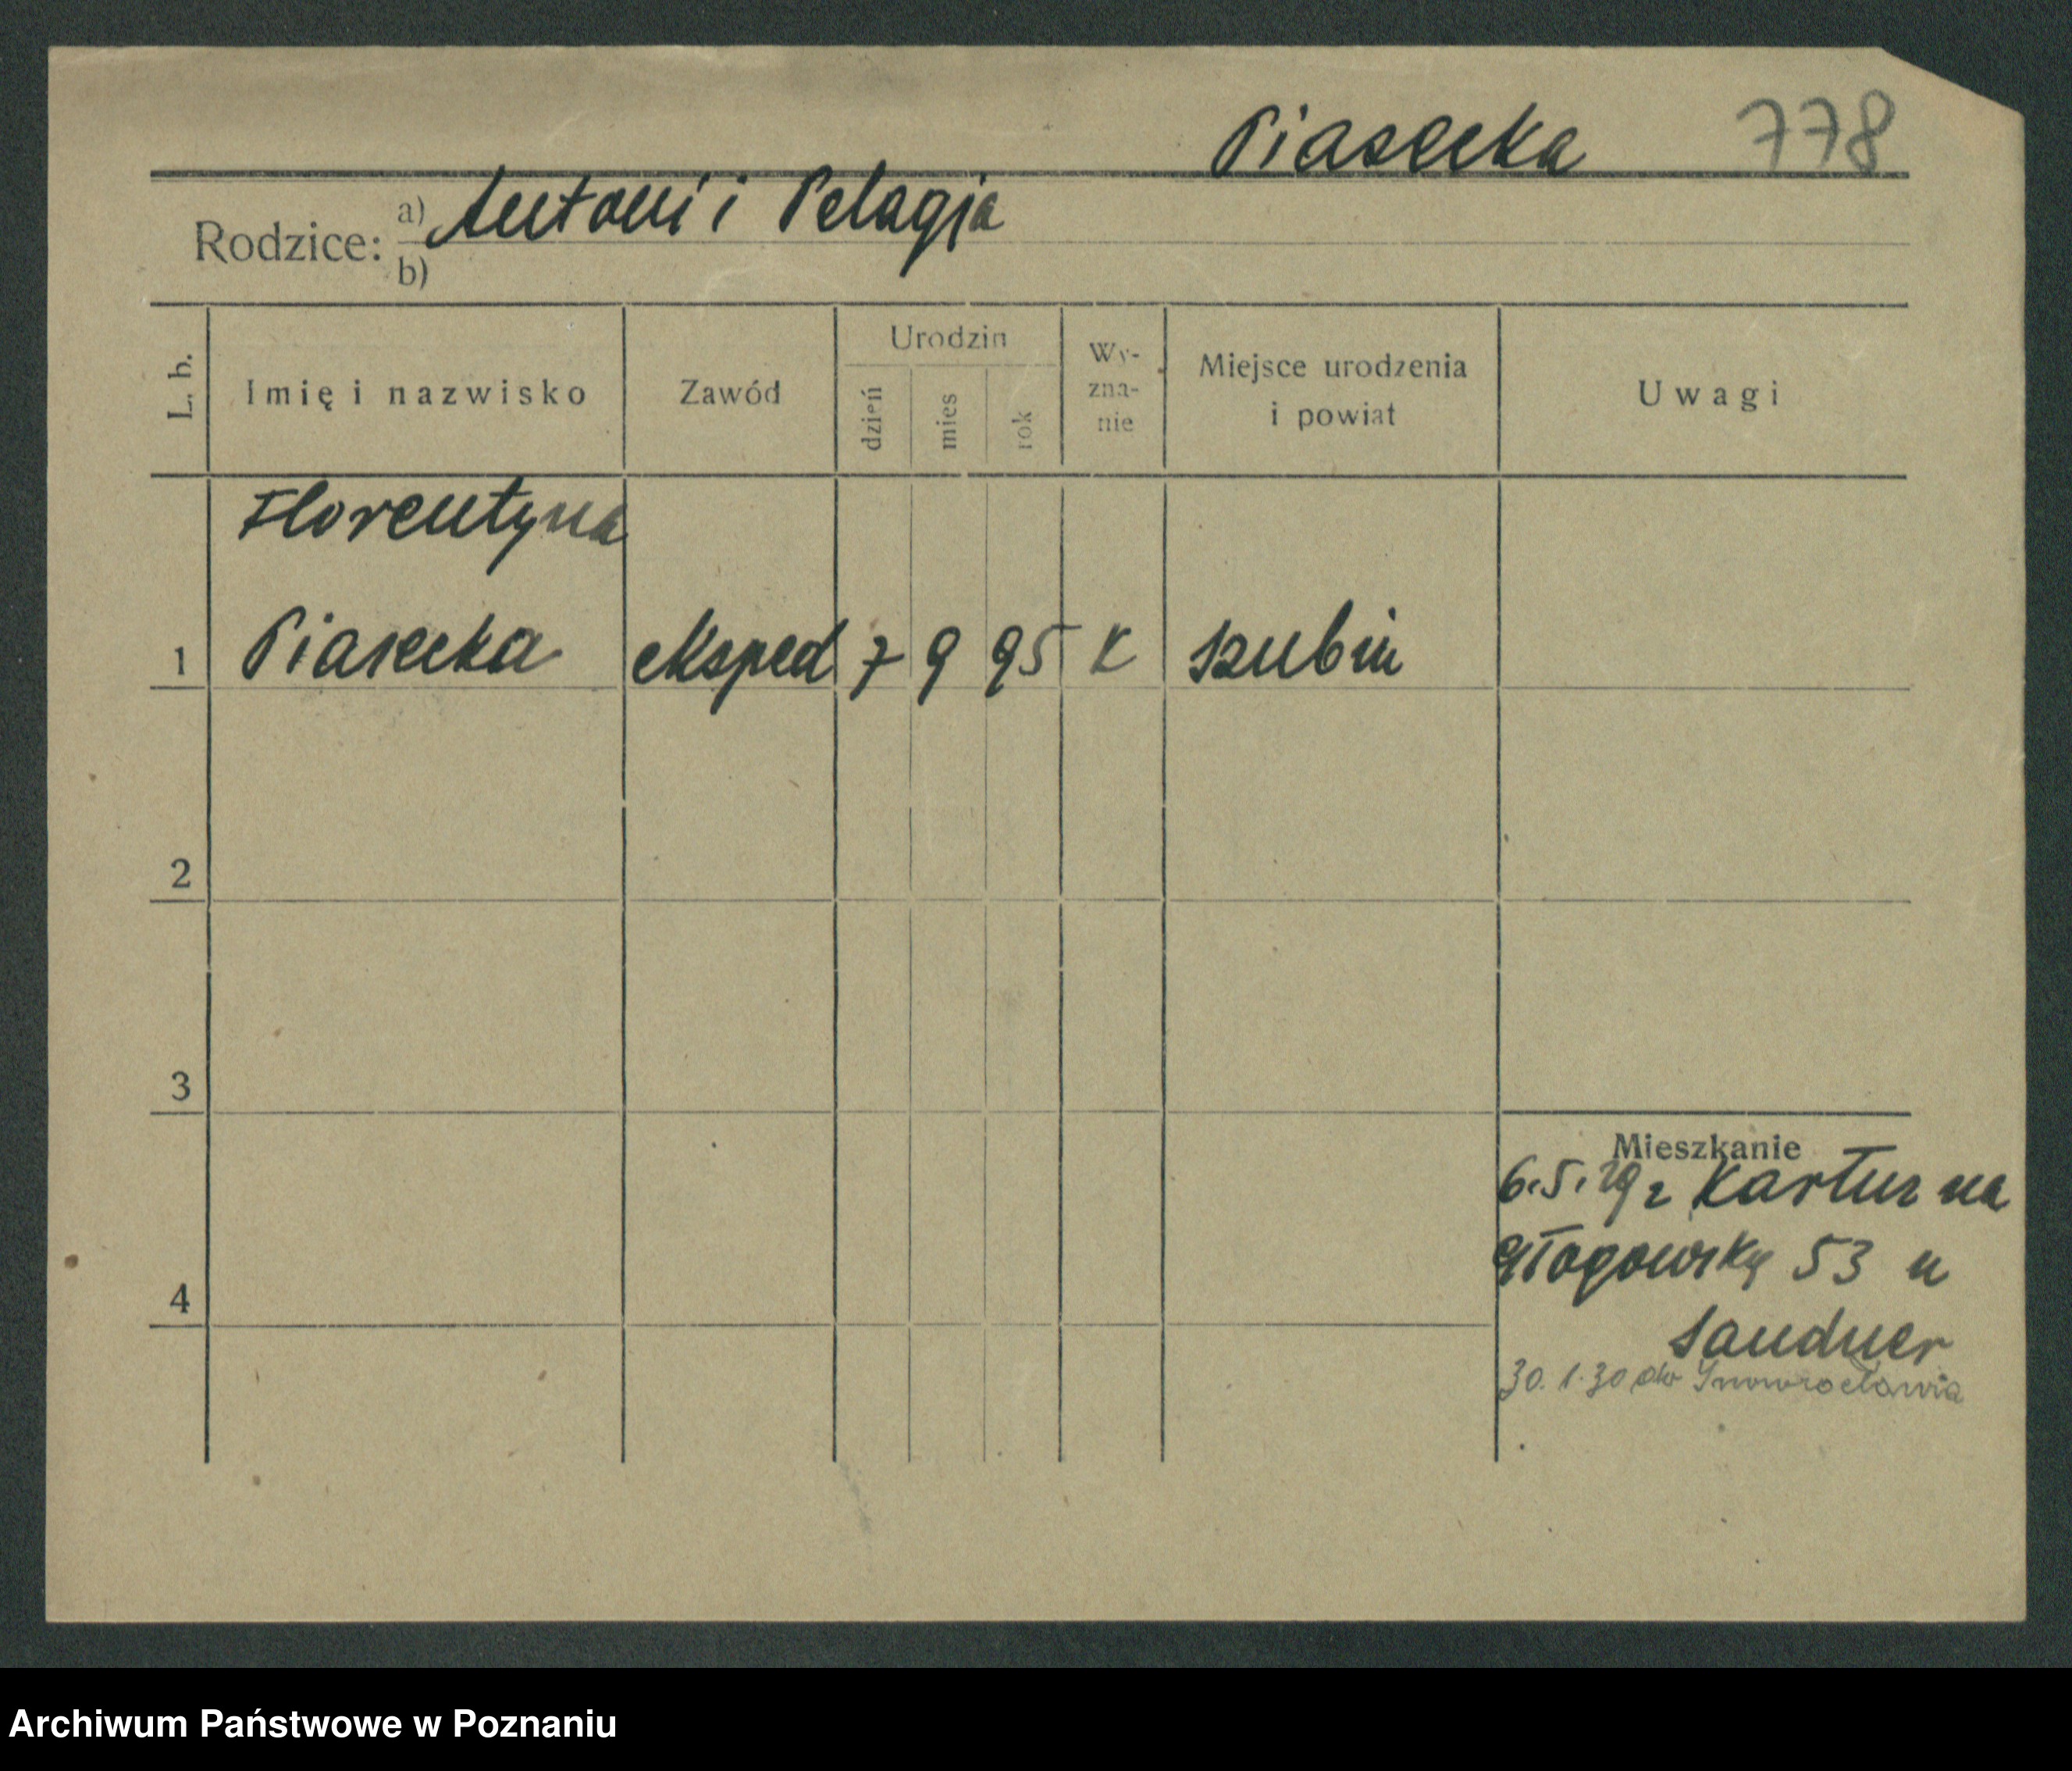 Piasecka 778
Rodzice: a) Antoni i Pelagja
b)
L. b. Imię i nazwisko Zawód Urodzin dzień mies rok Wy-zna-nie Miejsce urodzenia i powiat Uwagi
Florentyna
1 Piasecka eksped 7 9 95 K Szubin
2
3
Mieszkanie
6.5.29 z Kartuz na
Głogowską 53 u
4
Sandner
30.1.30 do Inowrocławia
Archiwum Państwowe w Poznaniu